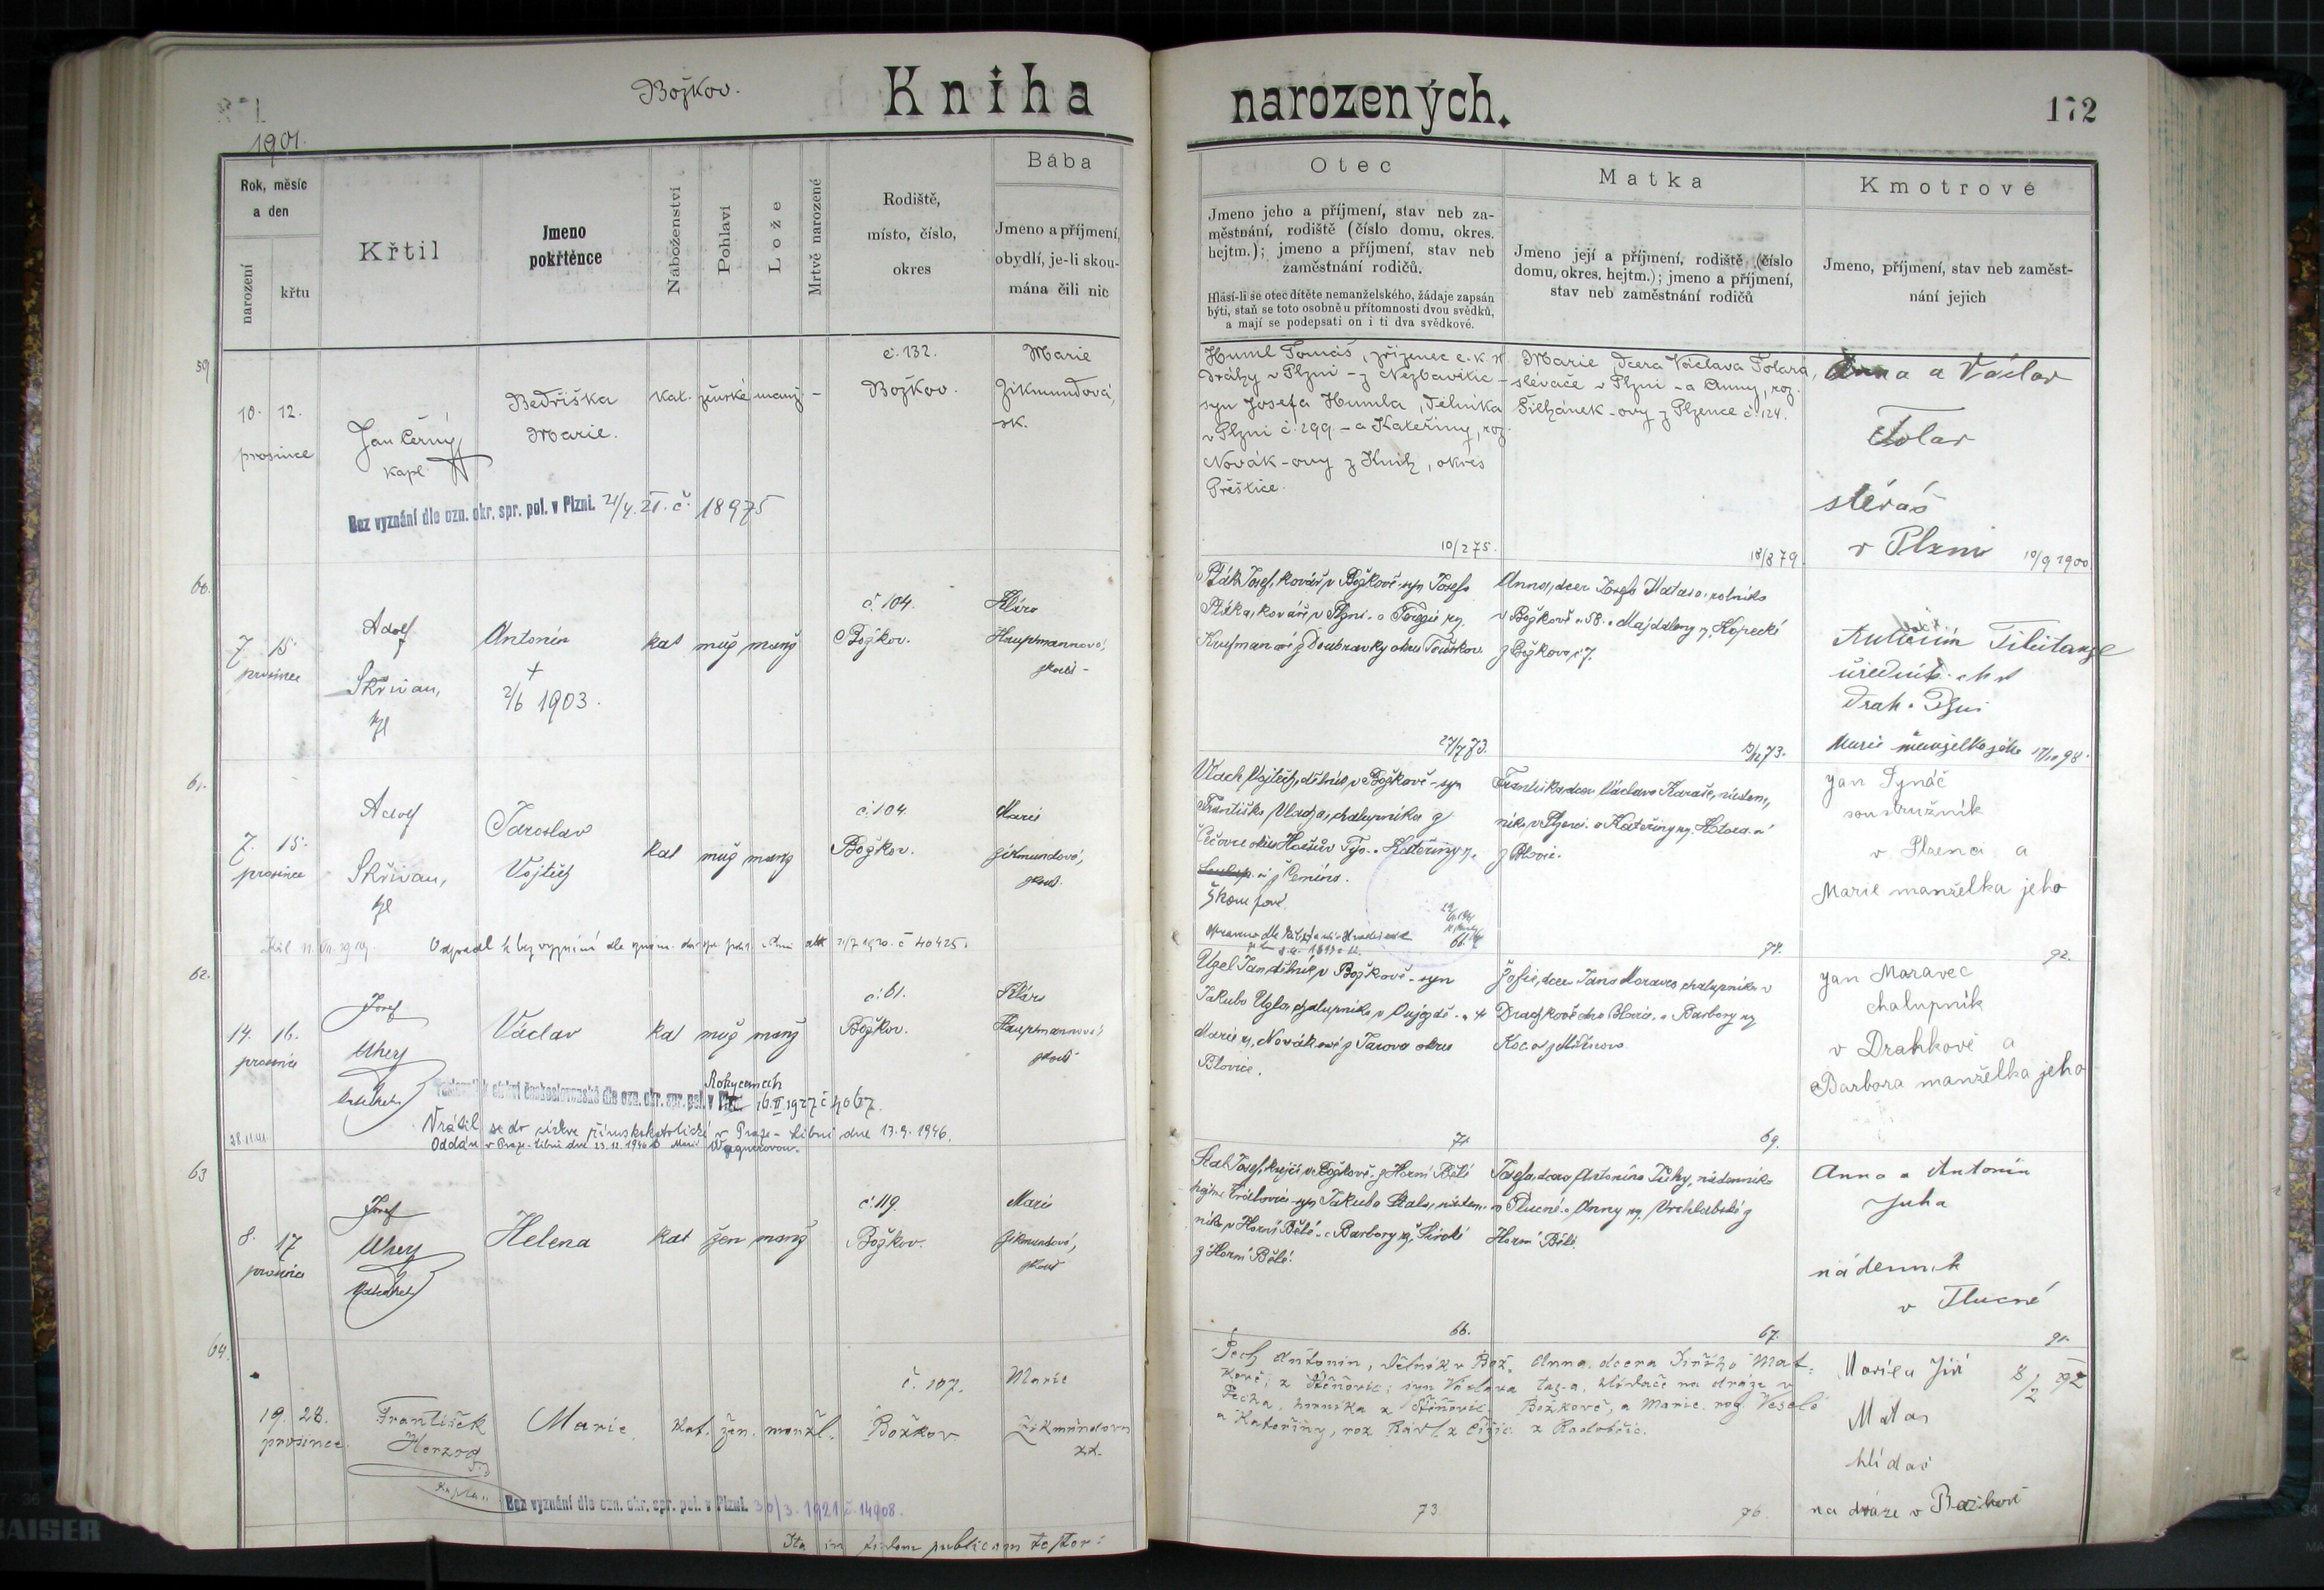 Božkov.
Kniha
narozených.
172
1901.
Rok, měsíc
a den
narození
křtu
Křtil
Jmeno
pokřtěnce
Náboženství
Pohlaví
Lože
Mrtvě narozené
Rodiště,
místo, číslo,
okres
Bába
Jmeno a příjmení,
obydlí, je-li skou-
mána čili nic
Otec
Jmeno jeho a příjmení, stav neb za-
městnání, rodiště (číslo domu, okres.
hejtm.); jmeno a příjmení, stav neb
zaměstnání rodičů.
Hlásí-li se otec dítěte nemanželského, žádaje zapsán
býti, staň se toto osobně u přítomnosti dvou svědků,
a mají se podepsati on i ti dva svědkové.
Matka
Jmeno její a příjmení, rodiště (číslo
domu, okres, hejtm.); jmeno a příjmení,
stav neb zaměstnání rodičů
Kmotrové
Jmeno, příjmení, stav neb zaměst-
nání jejich
59
10. 12.
prosince
Jan Černý
kapl.
Bedřiška
Marie.
kat. ženské manž. -
č. 132.
Božkov.
Marie
Zikmundová,
zk.
Bez vyznání dle ozn. okr. spr. pol. v Plzni. 21/4. 21. č. 18975
Huml Tomáš, zřízenec c. k.
dráhy v Plzni - z Nezbavětic -
syn Josefa Humla, dělníka
v Plzni č. 299 - a Kateřiny, roz.
Novák-ovy z Knih, okres
Přeštice.
10/2 75.
Marie dcera Václava Tolara,
slévače v Plzni - a Anny, roz.
z Plzence č. 124.
18/8 79.
Anna a Václav
Tolar
slévač
v Plzni
10/9 1900
60.
7. 15.
prosince
Adolf
Skřivan,
kpl
Antonín
+
2/6 1903.
kat muž manž
č. 104.
Božkov.
Klára
Hauptmannová,
zkouš-
Pták Josef, kovář v Božkově - syn Josefa
Ptáka, kováře v Plzni - a Terezie roz.
Kaufman ové z Doubravky okres Touškov
27/7 73.
Anna, dcera Josefa Matasa, rolníka
v Božkově č. 8. a Majdaleny r. Kopecké
z Božkova č. 7.
73.
Antonín
úředník
drah. Plzni
Marie manželka jeho 17/10 98.
61.
7. 15.
prosince
Adolf
Skřivan,
kpl
Jaroslav
Vojtěch
kat muž manž
č. 104.
Božkov.
Marie
Zikmundová,
zkouš.
Odpadl k bez vyznání dle 21/7 1920. č 40425.
Vlach Vojtěch, dělník v Božkově - syn
Františka Vlacha, chalupníka z
Čečovic okres Horšův Týn. a Kateřiny r.
z Čemína.
74.
Františka, dcera Václava Karaše, nádenn,
níka v Plzenci. a Kateřiny roz.
z Blovic.
Jan Tynáč
soustružník
v Plzenci a
Marie manželka jeho
92.
62.
14. 16.
prosince
Josef
Uhey
Václav
kat muž manž
č. 61.
Božkov.
Klára
Hauptmannová
zkouš-
Rokycanech
církvi československé dle ozn. okr. spr. pol. v 16. II 1927 č 4067.
Vrátil se do církve římskokatolické v Praze - Libni dne 13. 9. 1946.
Oddán v Praze-Libni dne 23. 12. 1946 s Marií Wagnerovou.
28.11.41
Ugel Jan, dělník v Božkově - syn
Jakuba Ugla, chalupníka v Vujezdě - a
Marie r. Novákové z Járova okres
Blovice.
71
Žofie, dcera Jana Moravce, chalupníka v
Drahkově okres Blovice. a Barbory roz
69.
Jan Moravec
chalupník
v Drahkově a
Barbora manželka jeho
63
8. 17
prosince
Josef
Uhey
Helena
kat žen manž
č. 119.
Božkov.
Marie
Zikmundová,
zkouš
Stal Josef, krejčí v Božkově, z Horní Bělé
hejtm. Královice - syn Jakuba Stala, nádenn-
níka v Horní Bělé - a Barbory roz. Široké
z Horní Bělé.
66.
Josefa, dcera Antonína Juhy, nádenníka
v Tlucné. a Anny roz. Vrchlabské z
Horní Bělé.
67.
Anna a Antonín
Juha
nádenník
v Tlucné
91.
64.
19. 28.
prosince.
František
Herzog
kaplan
Marie.
kat. žen. manžl.
č. 107.
Božkov
Marie
Zikmundova
zk.
Bez vyznání dle ozn. okr. spr. pol. v Plzni. 30/3. 1921 č. 14908.
Pech Antonín, dělník v Bož-
kově; z Štěňovic; syn Václava
Pecha, horníka z Štěňovic
a Kateřiny, roz Pávl z Čižic.
73.
Anna. dcera Jiřího Mat-
tas-a, hlídače na dráze v
Božkově, a Marie. roz Veselé
z Radobčic.
76.
Marie a Jiří 8/2 92
Matas
hlídač
na dráze v Božkově
Ita in fidem publicam testor: